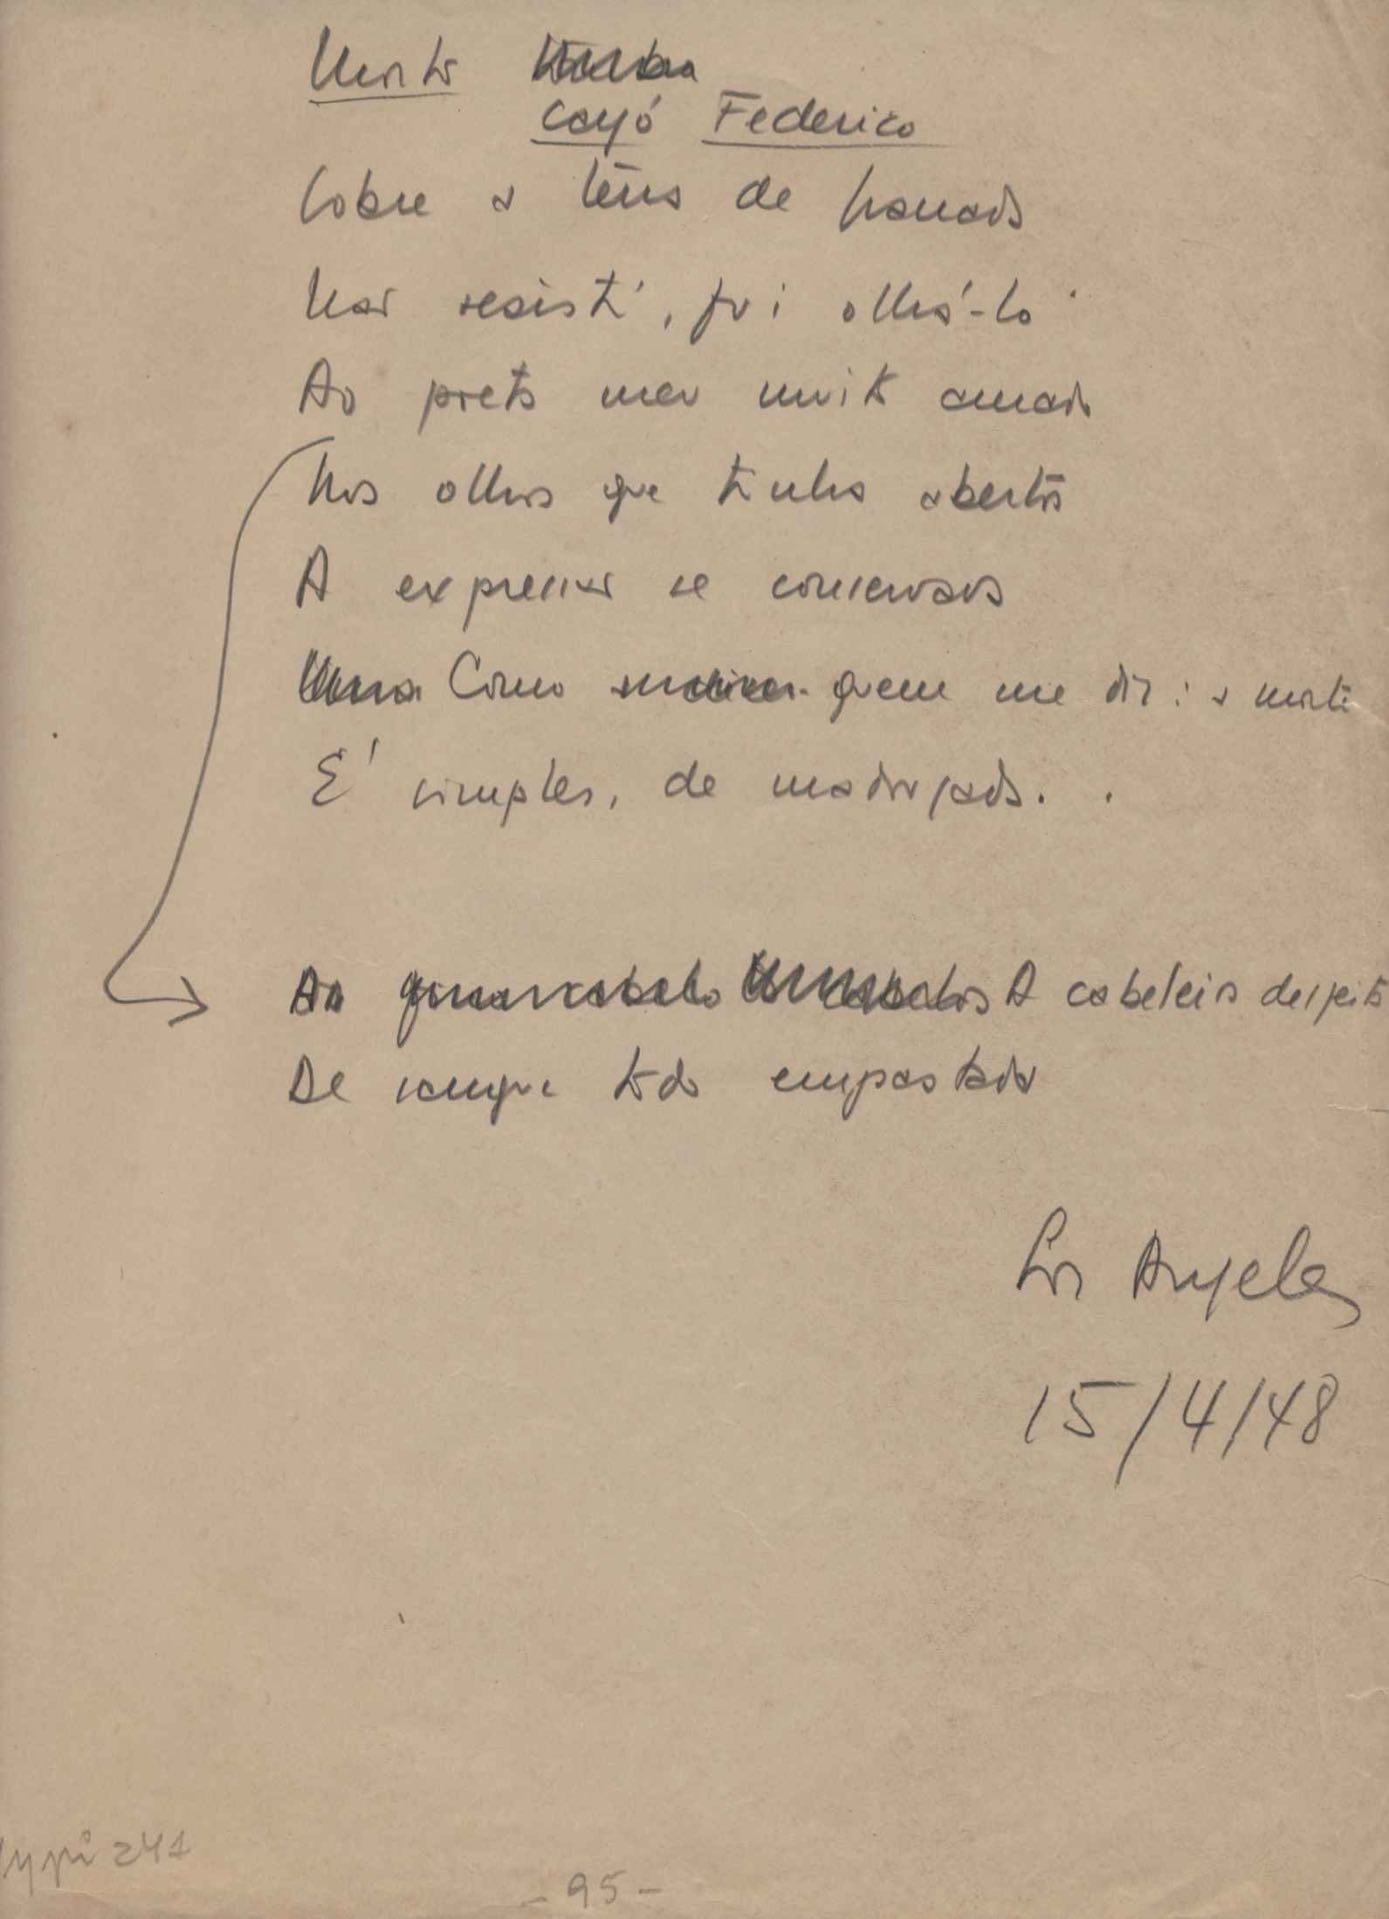 Morto
cayó Federico
Sobre a terra de Granada
Não resisti, fui olhá-lo
Ao preto meu muito amado
Nos olhos que tinha abertos
A expressão se conservava
Como quem me diz: a morte
E' simples, de madrugada.
Ao A cabeleira desfeita
De sangue toda empastada
Los Angeles
15/4/48
241
- 95 -